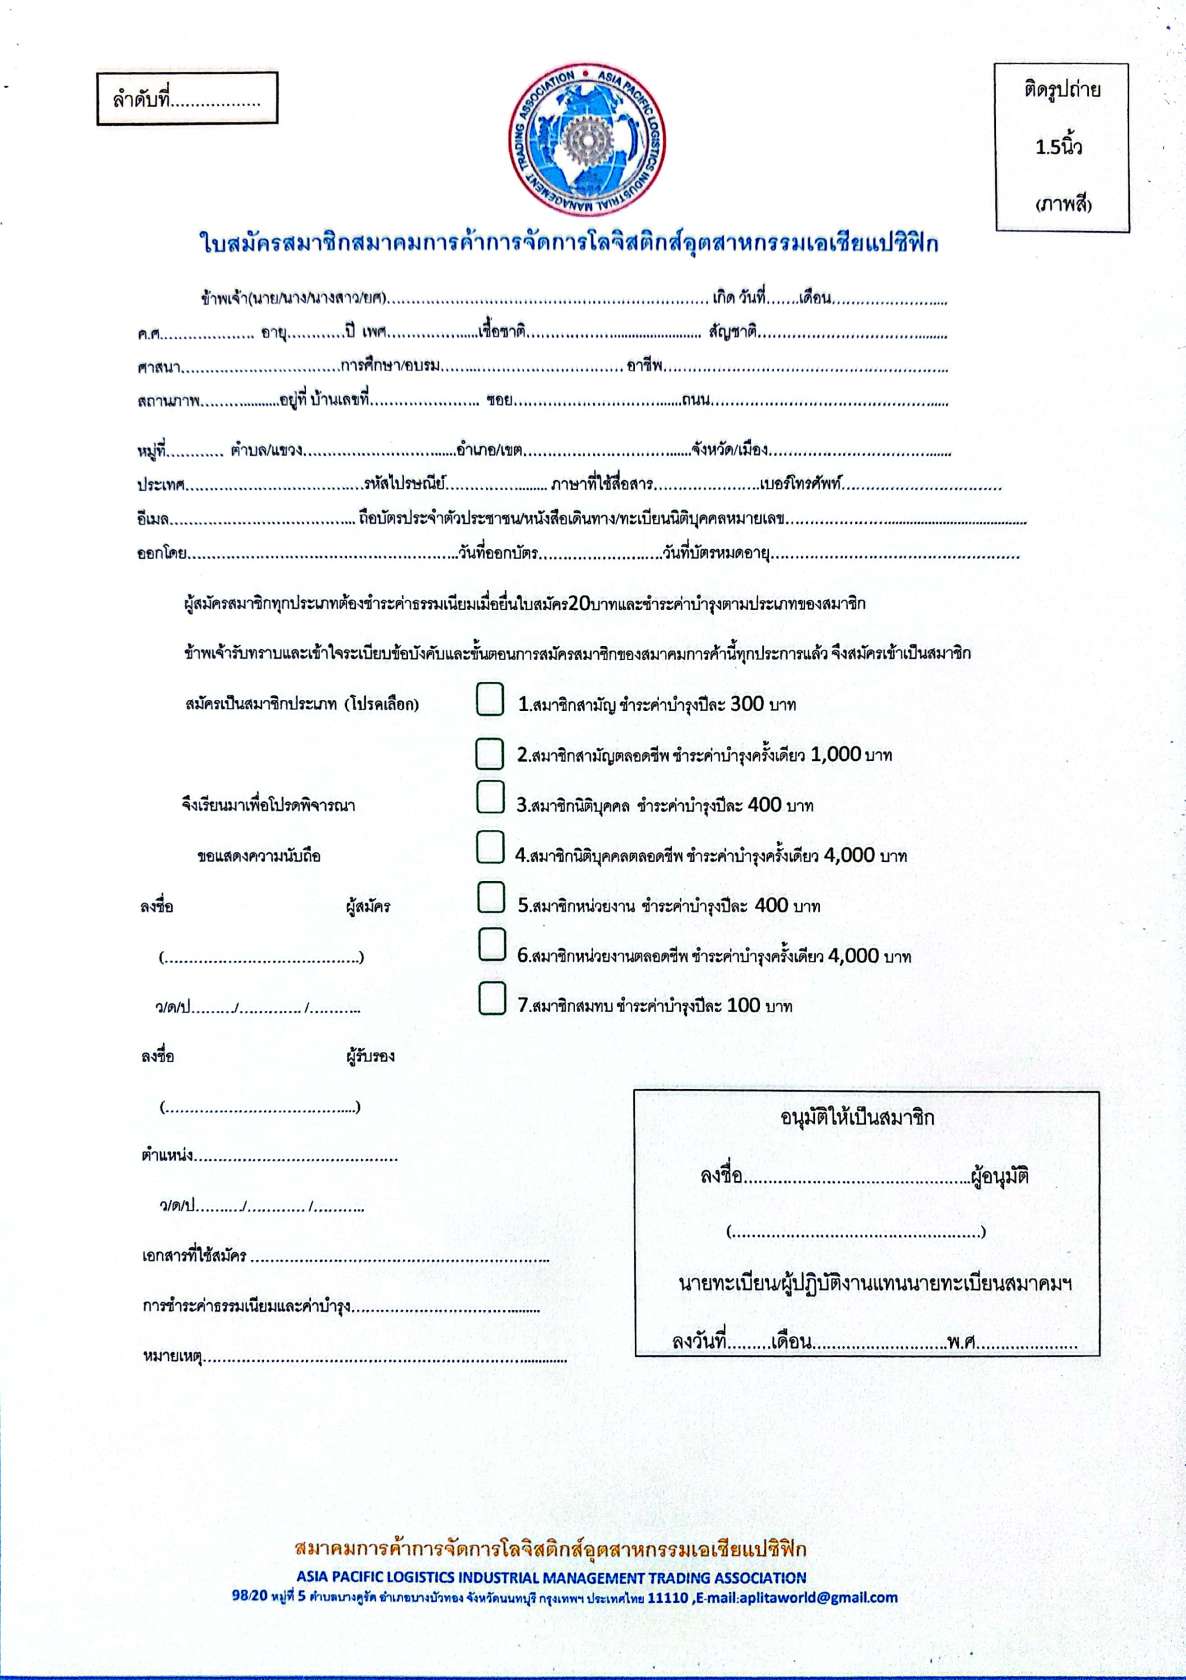 ลำดับที่..................
ASIA PACIFIC LOGISTICS INDUSTRIAL MANAGEMENT TRADING ASSOCIATION
ติดรูปถ่าย
1.5นิ้ว
(ภาพสี)
ใบสมัครสมาชิกสมาคมการค้าการจัดการโลจิสติกส์อุตสาหกรรมเอเชียแปซิฟิก
ข้าพเจ้า(นาย/นาง/นางสาว/ยศ)................................................................. เกิด วันที่.......เดือน........................
ค.ศ.................... อายุ............ปี เพศ...................เชื้อชาติ.................................... สัญชาติ.......................................
ศาสนา.................................การศึกษา/อบรม...................................... อาชีพ..........................................................
สถานภาพ................อยู่ที่ บ้านเลขที่....................... ซอย..................................ถนน.................................................
หมู่ที่............ ตำบล/แขวง................................อำเภอ/เขต...................................จังหวัด/เมือง......................................
ประเทศ.....................................รหัสไปรษณีย์..................... ภาษาที่ใช้สื่อสาร......................เบอร์โทรศัพท์.................................
อีเมล....................................... ถือบัตรประจำตัวประชาชน/หนังสือเดินทาง/ทะเบียนนิติบุคคลหมายเลข..................................................
ออกโดย........................................................วันที่ออกบัตร..........................วันที่บัตรหมดอายุ...................................................
ผู้สมัครสมาชิกทุกประเภทต้องชำระค่าธรรมเนียมเมื่อยื่นใบสมัคร20บาทและชำระค่าบำรุงตามประเภทของสมาชิก
ข้าพเจ้ารับทราบและเข้าใจระเบียบข้อบังคับและขั้นตอนการสมัครสมาชิกของสมาคมการค้านี้ทุกประการแล้ว จึงสมัครเข้าเป็นสมาชิก
สมัครเป็นสมาชิกประเภท (โปรดเลือก) 1.สมาชิกสามัญ ชำระค่าบำรุงปีละ 300 บาท
2.สมาชิกสามัญตลอดชีพ ชำระค่าบำรุงครั้งเดียว 1,000 บาท
จึงเรียนมาเพื่อโปรดพิจารณา 3.สมาชิกนิติบุคคล ชำระค่าบำรุงปีละ 400 บาท
ขอแสดงความนับถือ 4.สมาชิกนิติบุคคลตลอดชีพ ชำระค่าบำรุงครั้งเดียว 4,000 บาท
ลงชื่อ ผู้สมัคร 5.สมาชิกหน่วยงาน ชำระค่าบำรุงปีละ 400 บาท
(........................................) 6.สมาชิกหน่วยงานตลอดชีพ ชำระค่าบำรุงครั้งเดียว 4,000 บาท
ว/ด/ป........./............. /........... 7.สมาชิกสมทบ ชำระค่าบำรุงปีละ 100 บาท
ลงชื่อ ผู้รับรอง
(.......................................)
ตำแหน่ง..........................................
ว/ด/ป........../............ /...........
เอกสารที่ใช้สมัคร .............................................................
การชำระค่าธรรมเนียมและค่าบำรุง.......................................
หมายเหตุ...........................................................................
อนุมัติให้เป็นสมาชิก
ลงชื่อ..............................................ผู้อนุมัติ
(..................................................)
นายทะเบียน/ผู้ปฏิบัติงานแทนนายทะเบียนสมาคมฯ
ลงวันที่.........เดือน...........................พ.ศ.....................
สมาคมการค้าการจัดการโลจิสติกส์อุตสาหกรรมเอเชียแปซิฟิก
ASIA PACIFIC LOGISTICS INDUSTRIAL MANAGEMENT TRADING ASSOCIATION
98/20 หมู่ที่ 5 ตำบลบางคูรัด อำเภอบางบัวทอง จังหวัดนนทบุรี กรุงเทพฯ ประเทศไทย 11110 ,E-mail:aplitaworld@gmail.com